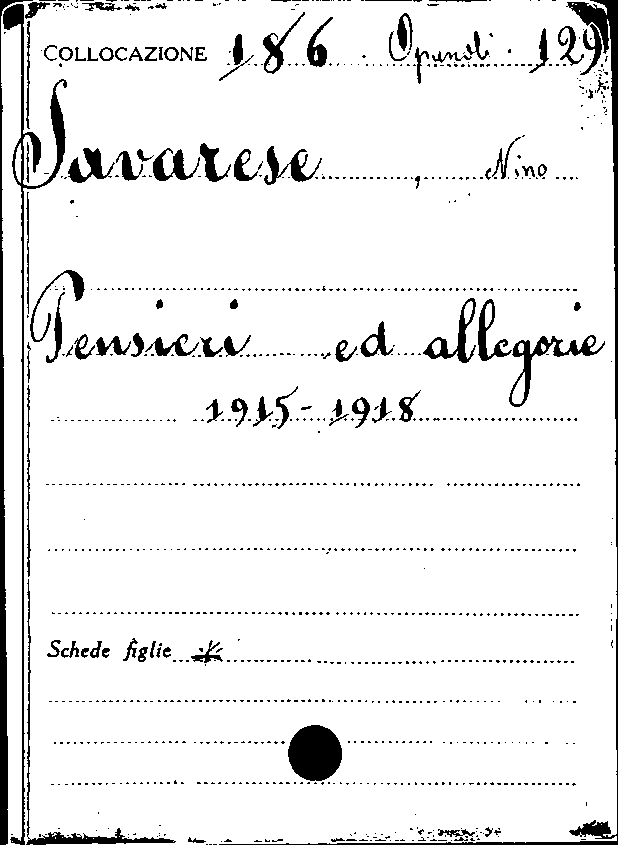 COLLOCAZIONE 186. Opuscoli. 129
Savarese, Nino
Pensieri ed allegorie
1915-1918
Schede figlie *